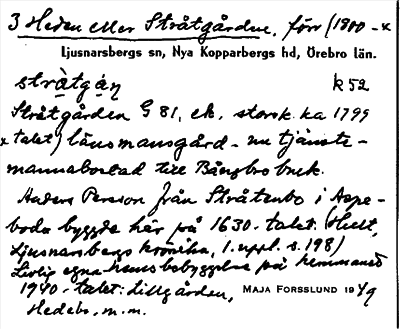 3 Heden eller Stråtgården, förr (1800-x
Ljusnarsbergs sn, Nya Kopparbergs hd, Örebro län.
stråtgáṇ k 52
Stråtgården G 81, ek. storsk. ka 1799
x talet) länsmansgård - nu tjänste-
mannabostad till Bångbro bruk.
Anders Persson från Stråtenbo i Aspe-
boda byggde här på 1630-talet. (Hult,
Ljusnarsbergs krönika, 1. uppl. s. 198)
Livlig egnahemsbebyggelse på hemmanet
1940-talet: Lillgården, MAJA FORSSLUND 1949
Hedebo, m.m.